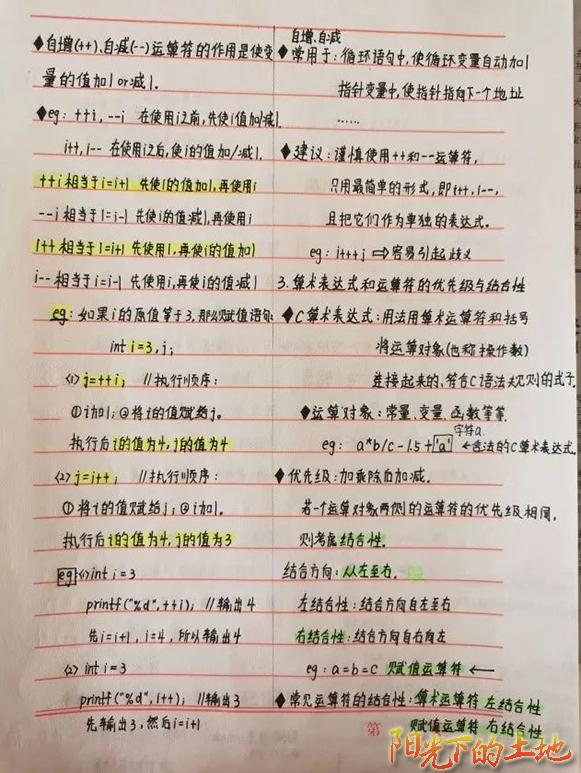 ◆自增(++)、自减(--)运算符的作用是使变
量的值加1or减1.
◆eg: ++i, --i 在使用i之前,先使i值加/减1.
i++, i-- 在使用i之后,使i的值加/减1.
++i相当于i=i+1 先使i的值加1,再使用i
--i相当于i=i-1 先使i的值减1,再使用i
i++相当于i=i+1 先使用i,再使i的值加1
i--相当于i=i-1 先使用i,再使i的值减1
eg: 如果i的原值等于3,那么赋值语句:
int i=3, j;
<1> j=++i; //执行顺序:
①i加1;②将i的值赋给j。
执行后i的值为4, j的值为4
<2> j=i++; //执行顺序:
①将i的值赋给j;②i加1.
执行后i的值为4, j的值为3
eg <1> int i=3
printf("%d", ++i); //输出4
先i=i+1, i=4, 所以输出4
<2> int i=3
printf("%d", i++); //输出3
先输出3,然后i=i+1
自增、自减
◆常用于:循环语句中,使循环变量自动加1
指针变量中,使指针指向下一个地址
……
◆建议:谨慎使用++和--运算符,
只用最简单的形式,即i++, i--,
且把它们作为单独的表达式。
eg: i+++j ⇒容易引起歧义
3.算术表达式和运算符的优先级与结合性
◆C算术表达式:用法用算术运算符和括号
将运算对象(也称操作数)
连接起来的、符合C语法规则的式子
◆运算对象:常量、变量、函数等等.
字符a.
eg: a*b/c-1.5+'a' ←合法的C算术表达式
◆优先级:加乘除后加减.
若一个运算对象两侧的运算符的优先级相同,
则考虑结合性.
结合方向:从左至右.
左结合性:结合方向自左至右
右结合性:结合方向自右向左
eg: a=b=c 赋值运算符 ←
◆常见运算符的结合性:算术运算符 左结合性
赋值运算符 右结合性
第
阳光下的土地